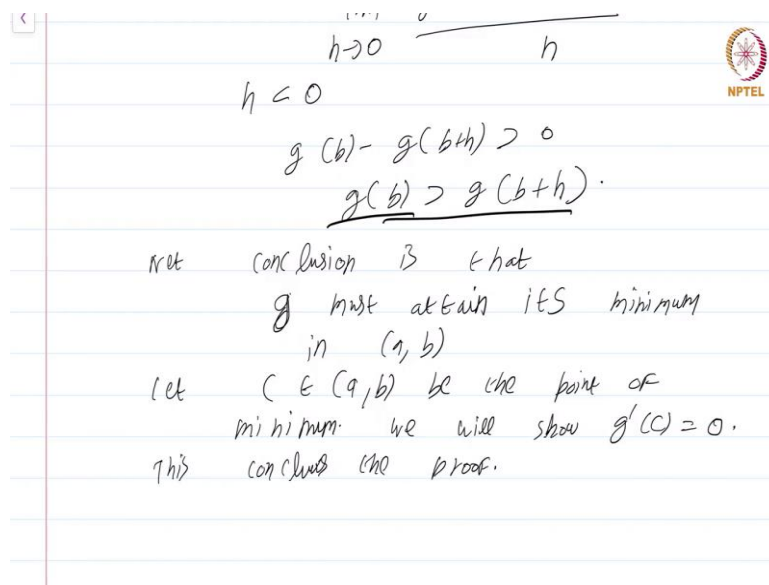 h→0 h
h < 0
g (b) - g(b+h) > 0
g(b) > g(b+h).
Net conclusion is that
g must attain its minimum
in (a, b)
let C ∈ (a,b) be the point of
minimum. we will show g'(C) = 0.
This concludes the proof.
NPTEL